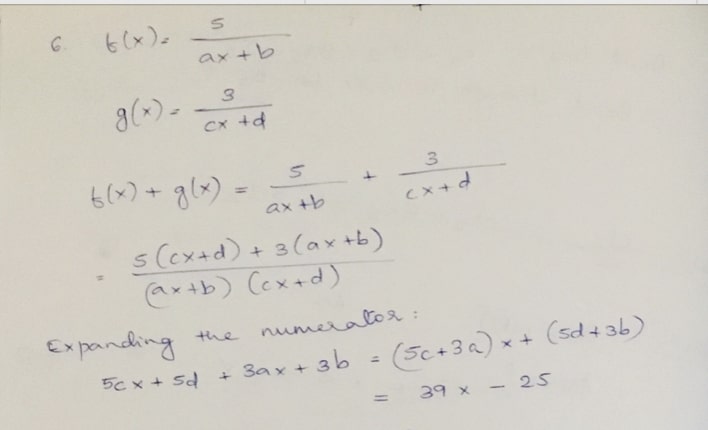 6. f(x) = 5 / ax + b
g(x) = 3 / cx + d
f(x) + g(x) = 5 / ax + b + 3 / cx + d
= 5(cx+d) + 3(ax+b) / (ax+b) (cx+d)
Expanding the numerator :
5cx + 5d + 3ax + 3b = (5c+3a)x + (5d+3b)
= 39x - 25